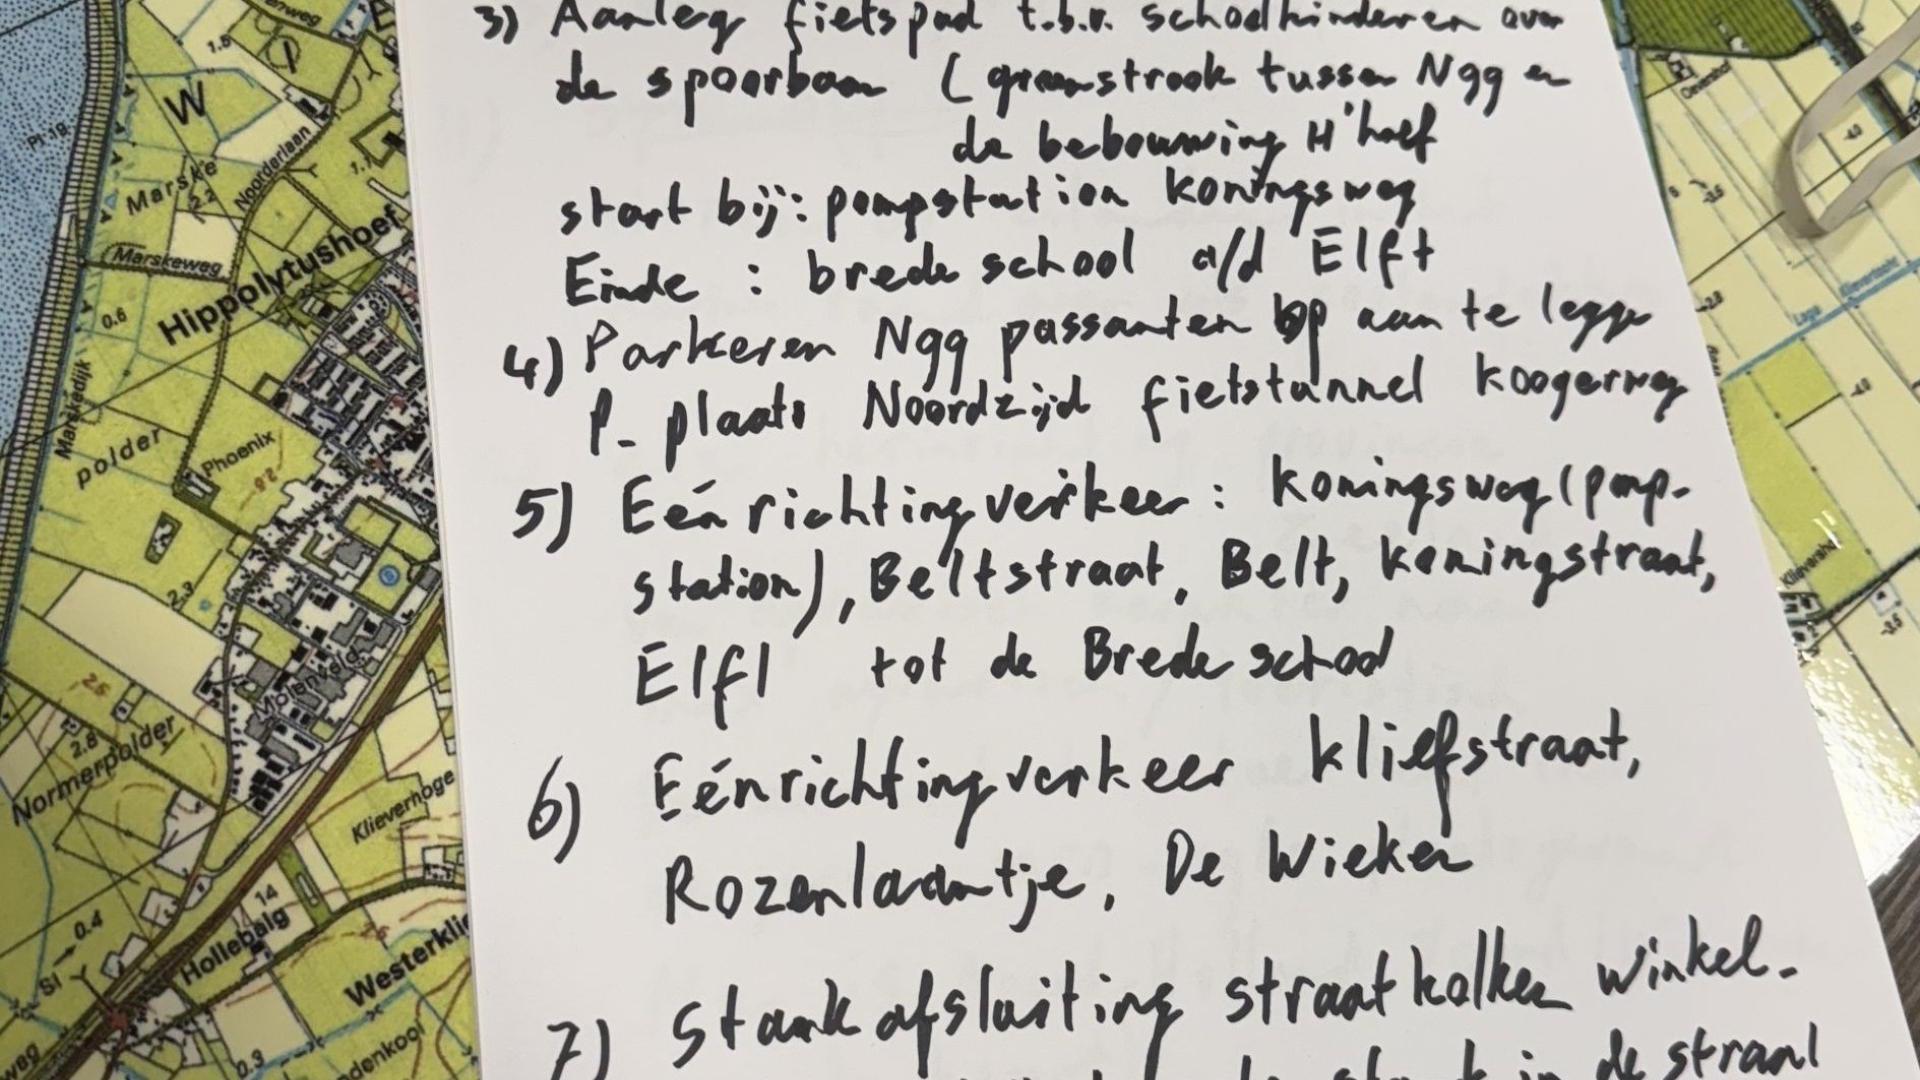 3) Aanleg fietspad t.b.v. schoolkinderen over
de spoorbaan (groenstrook tussen Ngg en
de bebouwing H'hoef
start bij: pompstation Koningsweg
Einde : brede school a/d Elft
4) Parkeren Ngg passanten op aan te leggen
P- plaats Noordzijd fietstunnel Koogerweg
5) Eénrichtingverkeer: Koningsweg (pomp-
station), Beltstraat, Belt, Koningstraat,
Elft tot de Brede school
6) Eénrichtingverkeer Kliefstraat,
Rozenlaantje, De Wieken
7) Stankafsluiting straatkolken winkel-
stank in de straat
W
1.8
Noorderlaan
Marske
2.2
Marskeweg
Hippolytushoef
0.6
Marskedijk
polder
Phoenix
2.3
Molenveld
2.6
2.8
Normerpolder
Klieverhoge
14
0.4
Hollebalg
Westerklie
SI
weg
0.3
denkool